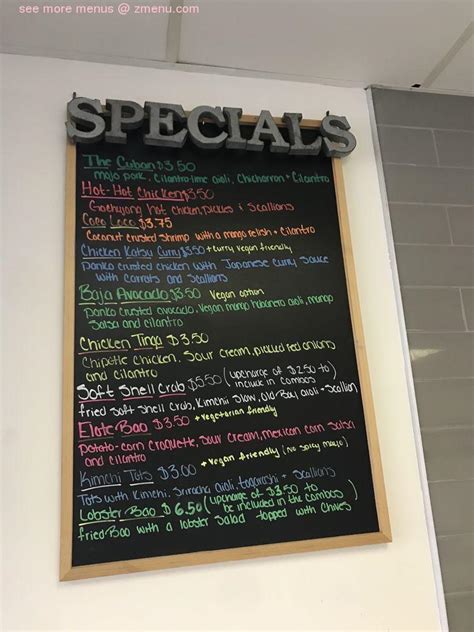 see more menus @ zmenu.com
SPECIALS
The Cuban $3.50
mojo pork, Cilantro-lime aioli, Chicharron + Cilantro
Hot-Hot Chicken $3.50
Gochujang hot chicken, pickles & Scallions
Coco Loco $3.75
Coconut crusted shrimp with a mango relish + cilantro
Chicken Katsu Curry $3.50 + curry vegan friendly
panko crusted chicken with Japanese curry sauce
with carrots and scallions
Baja Avocado $3.50 Vegan option
panko crusted avocado, Vegan mango habanero aioli, mango
Salsa and cilantro
Chicken Tinga $3.50
Chipotle chicken, Sour cream, pickled red onions
and cilantro
Soft Shell Crab $5.50 (upcharge of $2.50 to
include in combos)
fried Soft shell Crab, Kimchi Slaw, Old-Bay aioli + Scallion
Elote Bao $3.50 + Vegetarian friendly
Potato-corn croquette, sour cream, mexican corn salsa
and cilantro
Kimchi Tots $3.00 + Vegan friendly (no spicy mayo)
Tots with Kimchi, Sriracha aioli, togarashi + Scallions
Lobster Bao $6.50 (upcharge of $3.50 to
be included in the combos)
fried Bao with a lobster Salad topped with Chives